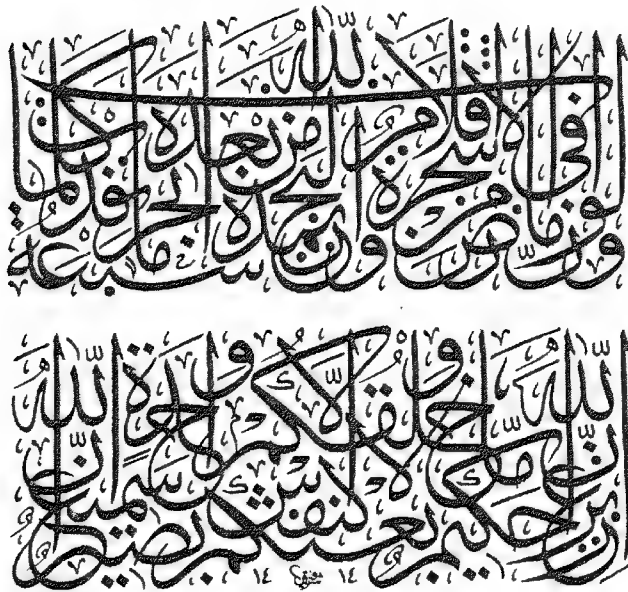 ولو أنما في الأرض من شجرة أقلام والبحر يمده من بعده سبعة أبحر ما نفدت كلمات الله
إن الله عزيز حكيم ما خلقكم ولا بعثكم إلا كنفس واحدة إن الله سميع بصير
١٤ ١٤